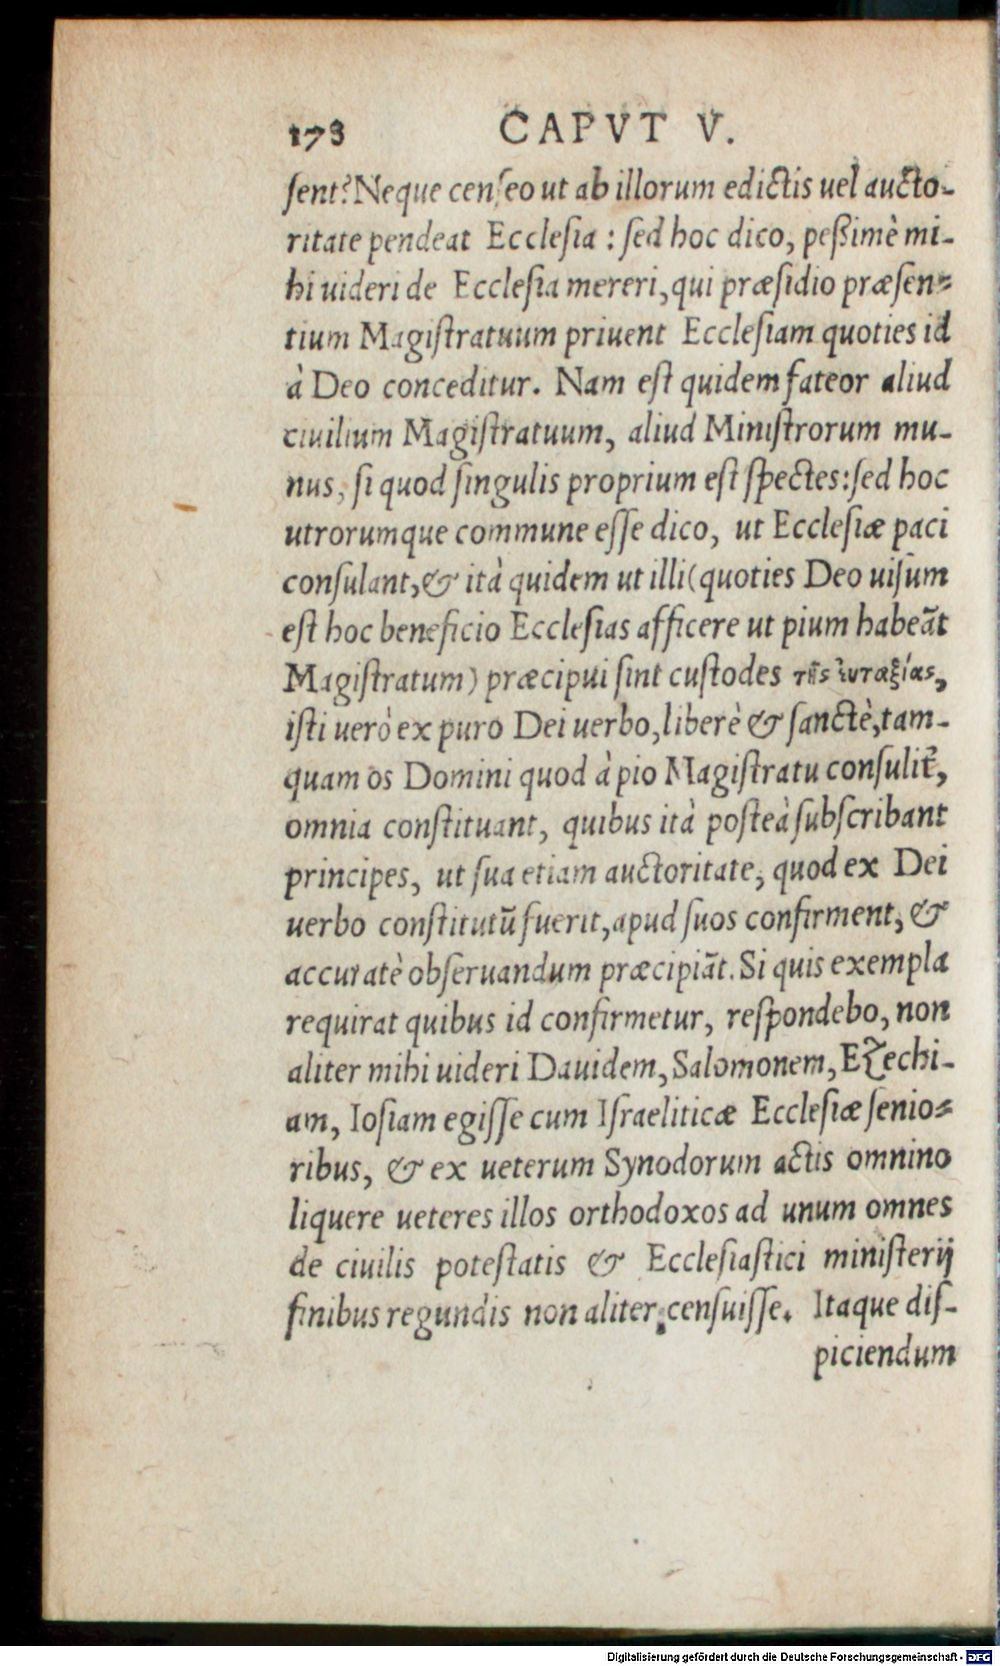 173 CAPVT V.
ſent? Neque cenſeo ut ab illorum edictis uel aucto-
ritate pendeat Eccleſia : ſed hoc dico, peßimè mi-
hi uideri de Eccleſia mereri, qui præſidio præſen-
tium Magiſtratuum priuent Eccleſiam quoties id
à Deo conceditur. Nam eſt quidem fateor aliud
ciuilium Magiſtratuum, aliud Miniſtrorum mu-
nus, ſi quod ſingulis proprium eſt ſpectes: ſed hoc
utrorumque commune eſſe dico, ut Eccleſiæ paci
conſulant, & ità quidem ut illi (quoties Deo uiſum
eſt hoc beneficio Eccleſias afficere ut pium habeãt
Magiſtratum) præcipui ſint cuſtodes τῆς ἐυταξίας,
iſti uerò ex puro Dei uerbo, liberè & ſanctè, tam-
quam os Domini quod à pio Magiſtratu conſulit᷑,
omnia conſtituant, quibus ità poſteà ſubſcribant
principes, ut ſua etiam auctoritate, quod ex Dei
uerbo conſtitutũ fuerit, apud ſuos confirment, &
accuratè obſeruandum præcipiãt. Si quis exempla
requirat quibus id confirmetur, reſpondebo, non
aliter mihi uideri Dauidem, Salomonem, Ezechi-
am, Ioſiam egiſſe cum Iſraeliticæ Eccleſiæ ſenio-
ribus, & ex ueterum Synodorum actis omnino
liquere ueteres illos orthodoxos ad unum omnes
de ciuilis poteſtatis & Eccleſiaſtici miniſterij
finibus regundis non aliter cenſuiſſe. Itaque diſ-
piciendum
Digitalisierung gefördert durch die Deutsche Forschungsgemeinschaft - DFG